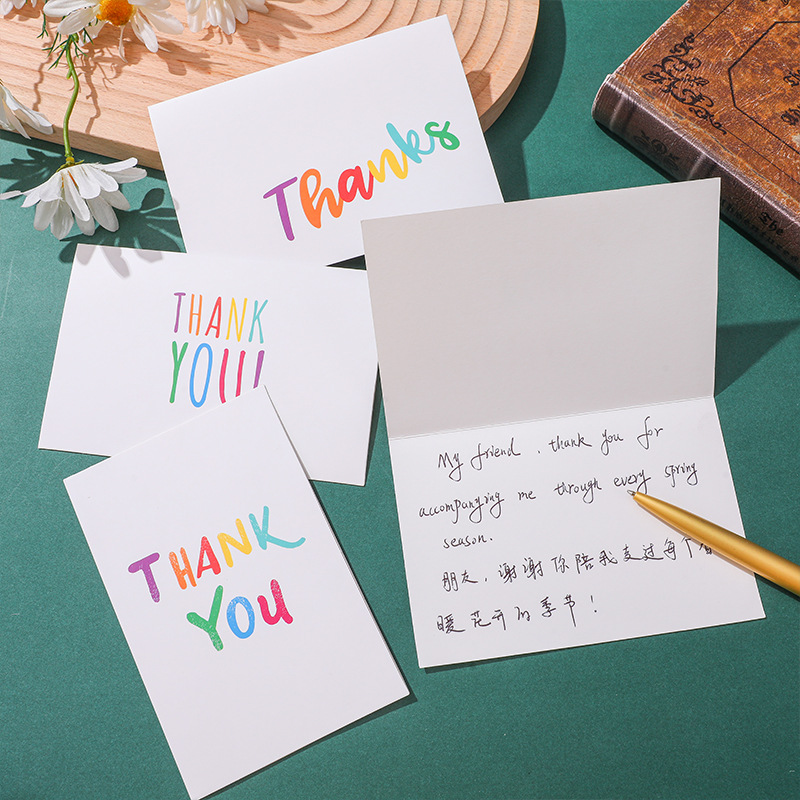 Thanks
THANK
YOU!
THANK
YOU
My friend, thank you for
accompanying me through every spring
season.
朋友,谢谢你陪我走过每个春
暖花开的季节!
The